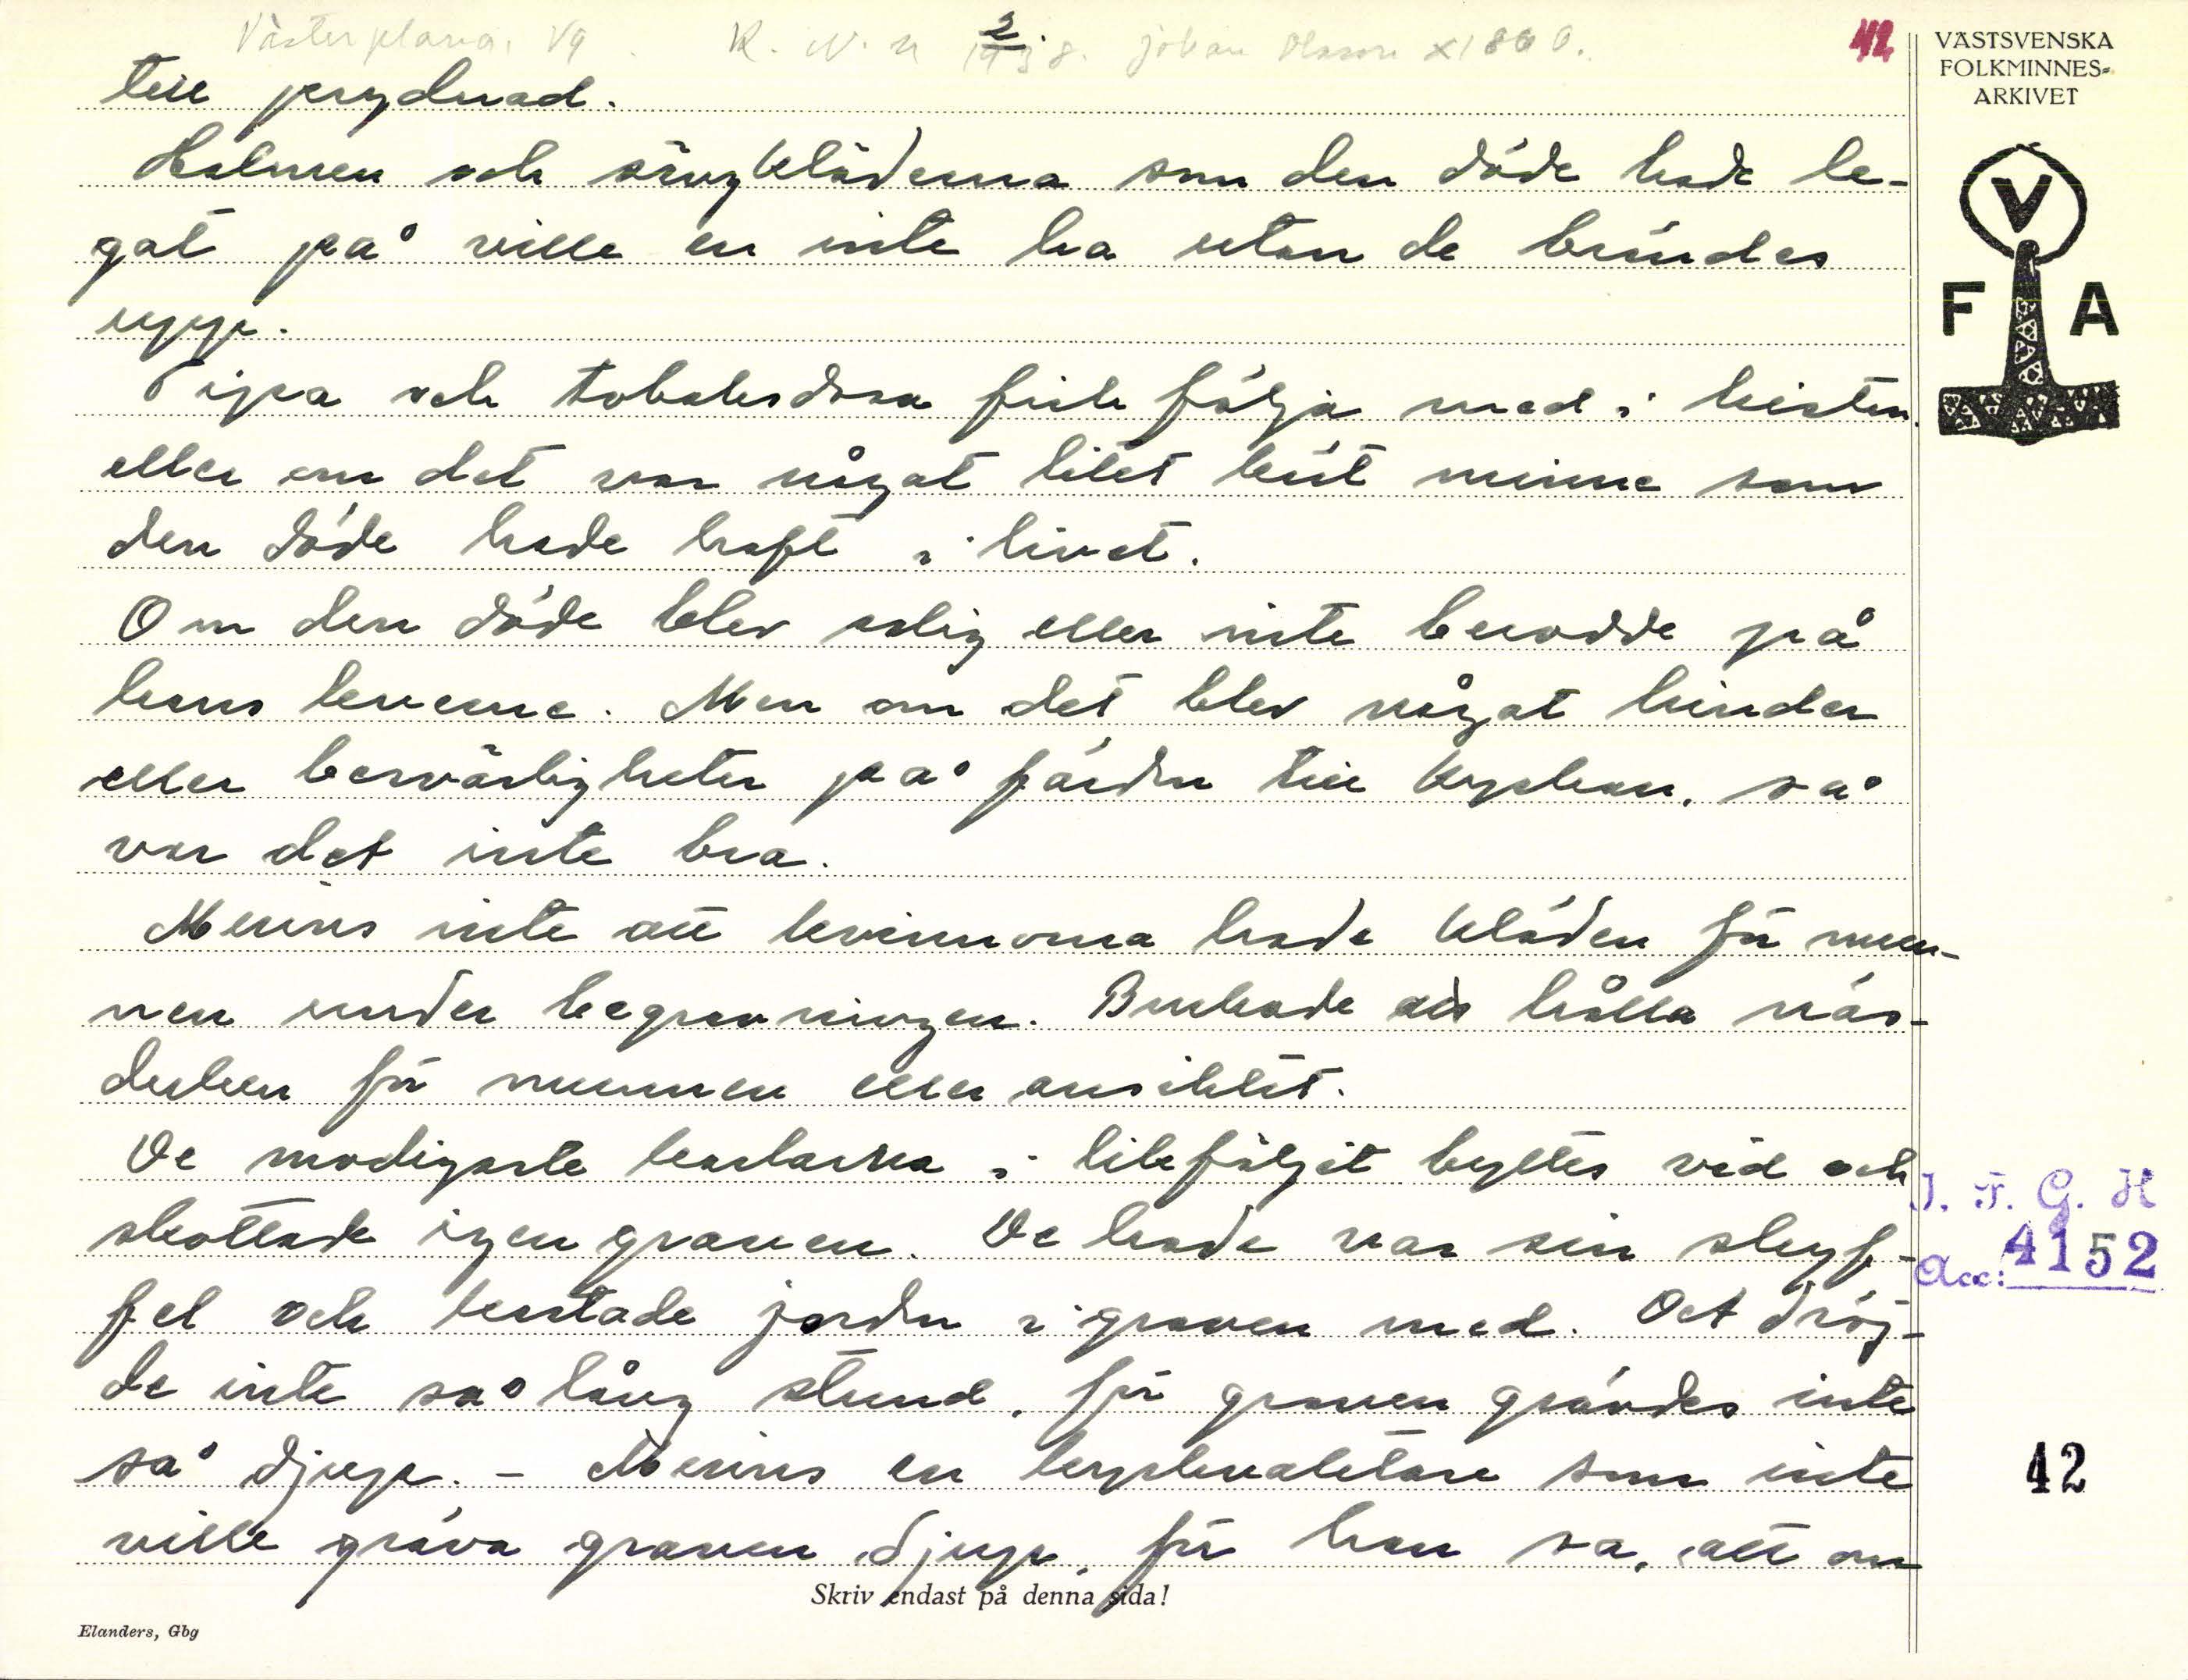 Västerplana. Vg. K. N. n 2/1938. Johan Olsson x1860. 42
till prydnad.
Halmen och sängkläderna som den döde hade le-
gat på ville en inte ha utan de brändes
upp.
Pipa och tobaksdosa fick följa med i kistan
eller om det var något litet kärt minne som
den döde hade haft i livet.
Om den döde blev salig eller inte berodde på
hans leverne. Men om det blev något hinder
eller besvärligheter på färden till kyrkan, så
var det inte bra.
Minns inte att kvinnorna hade kläden för mun-
nen under begravningen. Brukade att hålla näs-
duken för munnen eller ansiktet.
De modigaste karlarna i likföljet byttes vid och
skottade igen graven. De hade var sin skyf-
fel och kastade jorden i graven med. Det dröj-
de inte så lång stund, för graven grävdes inte
så djup. - Minns en kyrkvaktare som inte
ville gräva graven djup, för han sa, att om
Skriv endast på denna sida!
Elanders, Gbg
VÄSTSVENSKA
FOLKMINNES-
ARKIVET
V
F A
I. F. G. H
Acc: 4152
42